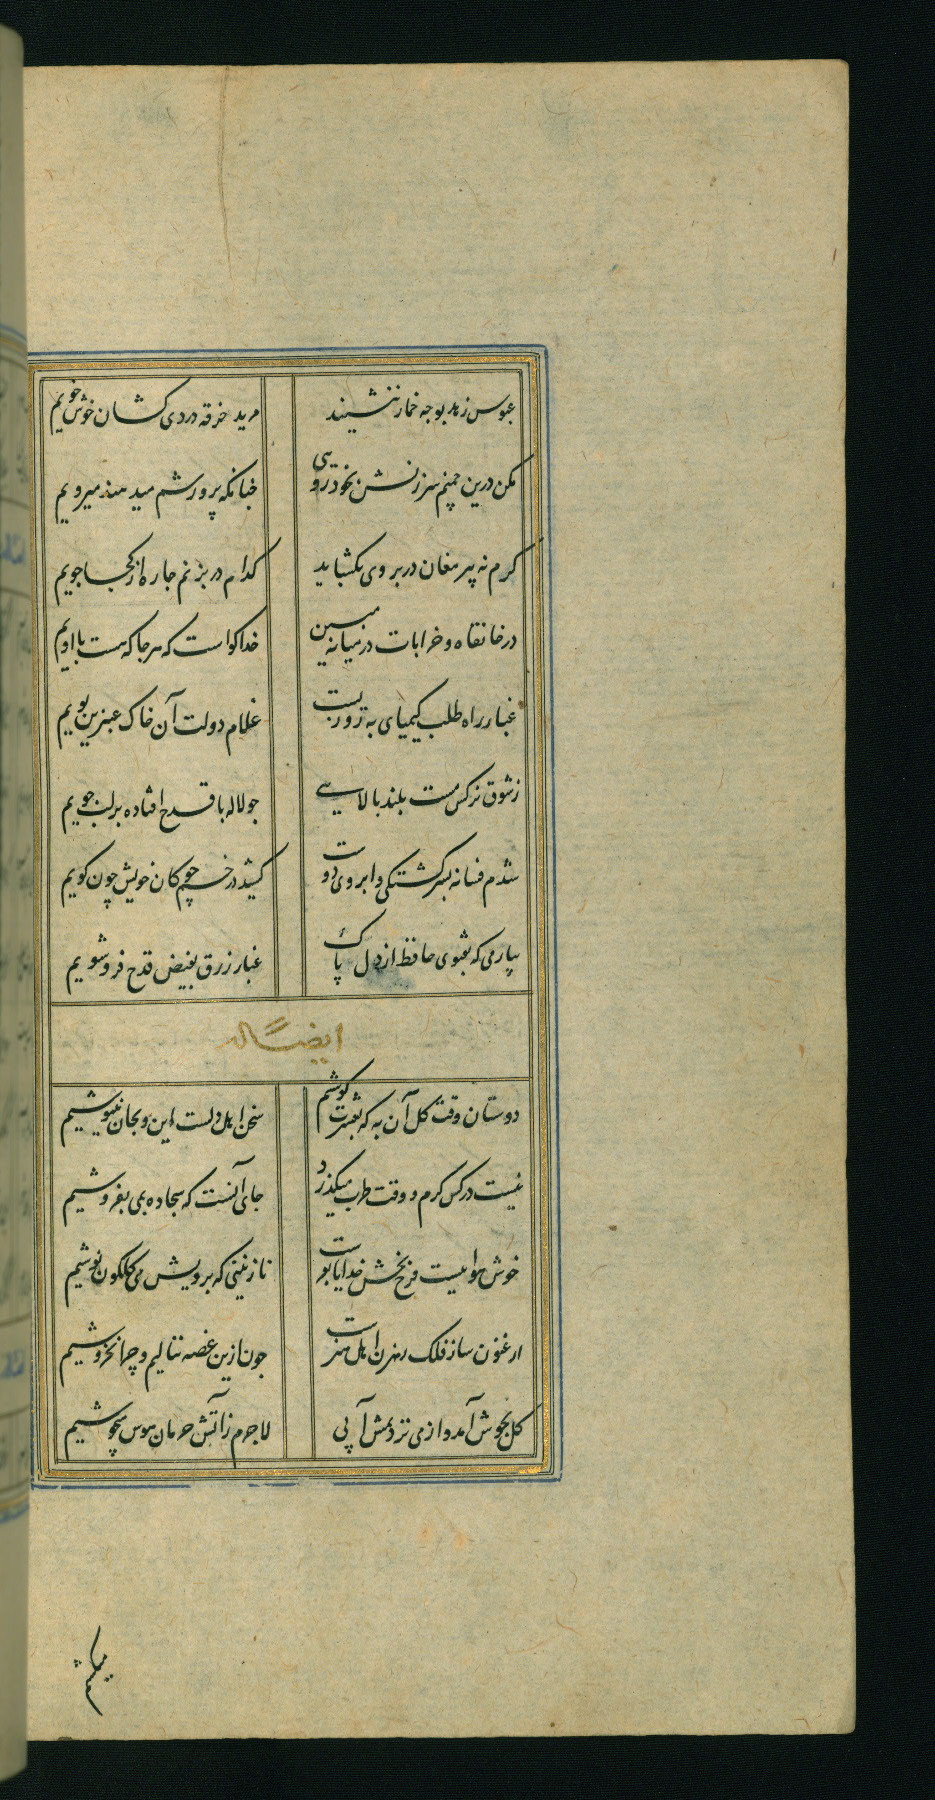 عبوس زهد بوجه خمار ننشیند
مرید خرقه دردی کشان خوش خویم
مکن درین چمنم سرزنش بخود رویی
چنانکه پرورشم میدهند میرویم
کرم نه پیر مغان در بروی بکشاید
کدام در بزنم چاره از کجا جویم
در خانقاه و خرابات در میانه مبین
خدا کواست که هر جا که هست با اویم
غبار راه طلب کیمیای به روزیست
غلام دولت آن خاک عنبرین بویم
ز شوق نرکس مست بلند بالایی
جو لاله با قدح افتاده بر لب جویم
شدم فسانه بسرکشتکی و ابروی دوست
کشید در خم چوکان خویش چون کویم
بیار می که بفتوی حافظ از دل پاک
غبار زرق بفیض قدح فرو شویم
ایضاً له
دوستان وقت کل آن به که بعشرت کوشیم
سخن اهل دلست این و بجان بنیوشیم
نیست در کس کرم و وقت طرب میکذرد
جای آنست که سجاده بمی بفروشیم
خوش هوایست فرح بخش خدایا بفرست
نازنینی که برویش می کلکون نوشیم
ارغنون ساز فلک رهزن اهل هنرست
جون ازین غصه ننالیم و چرا نخروشیم
کل بجوش آمد و از می نزدیمش آبی
لاجرم زآتش حرمان هوس میجوشیم